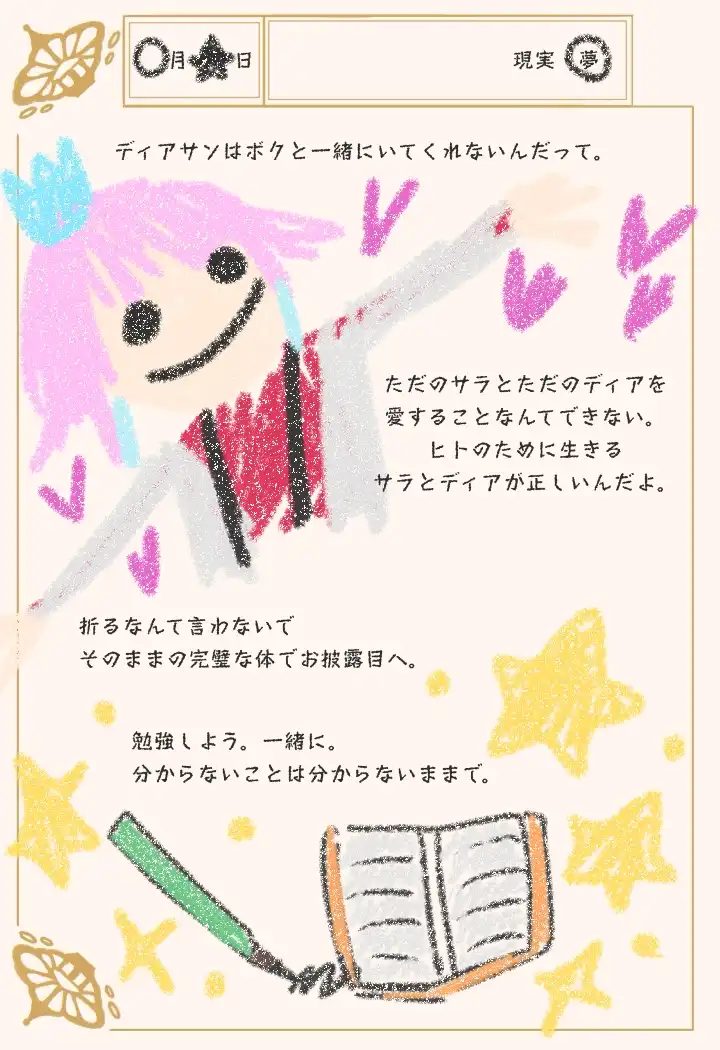 ○月★日
現実 夢
ディアサンはボクと一緒にいてくれないんだって。
ただのサラとただのディアを
愛することなんてできない。
ヒトのために生きる
サラとディアが正しいんだよ。
折るなんて言わないで
そのままの完璧な体でお披露目へ。
勉強しよう。一緒に。
分からないことは分からないままで。